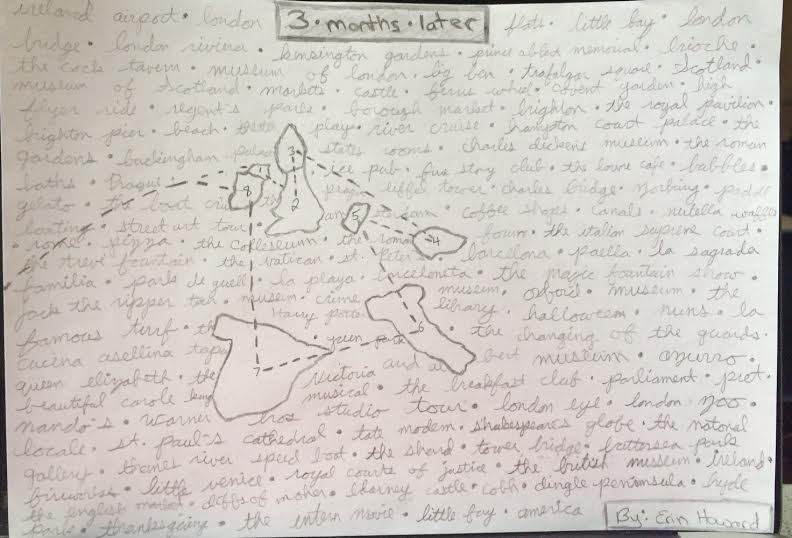 ireland airport • london 3 • months • later flats • little bay • london
bridge • london riviera • kensington gardens • prince albert memorial • brioche •
the cock tavern • museum of london • big ben • trafalgar square • scotland •
museum of scotland • markets • castle • ferris wheel • covent garden • high
flyer ride • regent's park • borough market • brighton • the royal pavilion •
brighton pier • beach • play • river cruise • hampton court palace • the
gardens • buckingham palace 3 state rooms • charles dickens museum • the roman
baths • Prague 8 pub • five story club • the louvre cafe • bubbles •
gelato • the boat 2 eiffel tower • charles bridge • paddle
boating • street art tour 5 coffee shops • canals • nutella waffles
• rome • pizza • the colleseum • the roman 4 forum • the italian supreme court •
the trevi fountain • the vatican • st. peter's barcelona • paella • la sagrada
familia • park de guell • la playa • barceloneta • the magic fountain show •
jack the ripper tour • museum • crime museum • oxford • museum • the
famous turf • Harry Potter 6 library • halloween • nuns • la
cucina asellina green park • the changing of the guards •
queen elizabeth • the 7 Victoria and albert museum • azurro •
beautiful carole king musical • the breakfast club • parliament • pret •
nando's • warner bros studio tour • london eye • london zoo •
locale • st. paul's cathedral • tate modern • shakespeare's globe • the natonal
gallery • thames river speed boat • the shard • tower bridge • battersea park
little venice • royal courts of justice • the british museum • ireland •
the english market • cliffs of moher • blarney castle • cobh • dingle peninsula • hyde
park • thanksgiving • the intern movie • little bay • america
By: Erin Howard